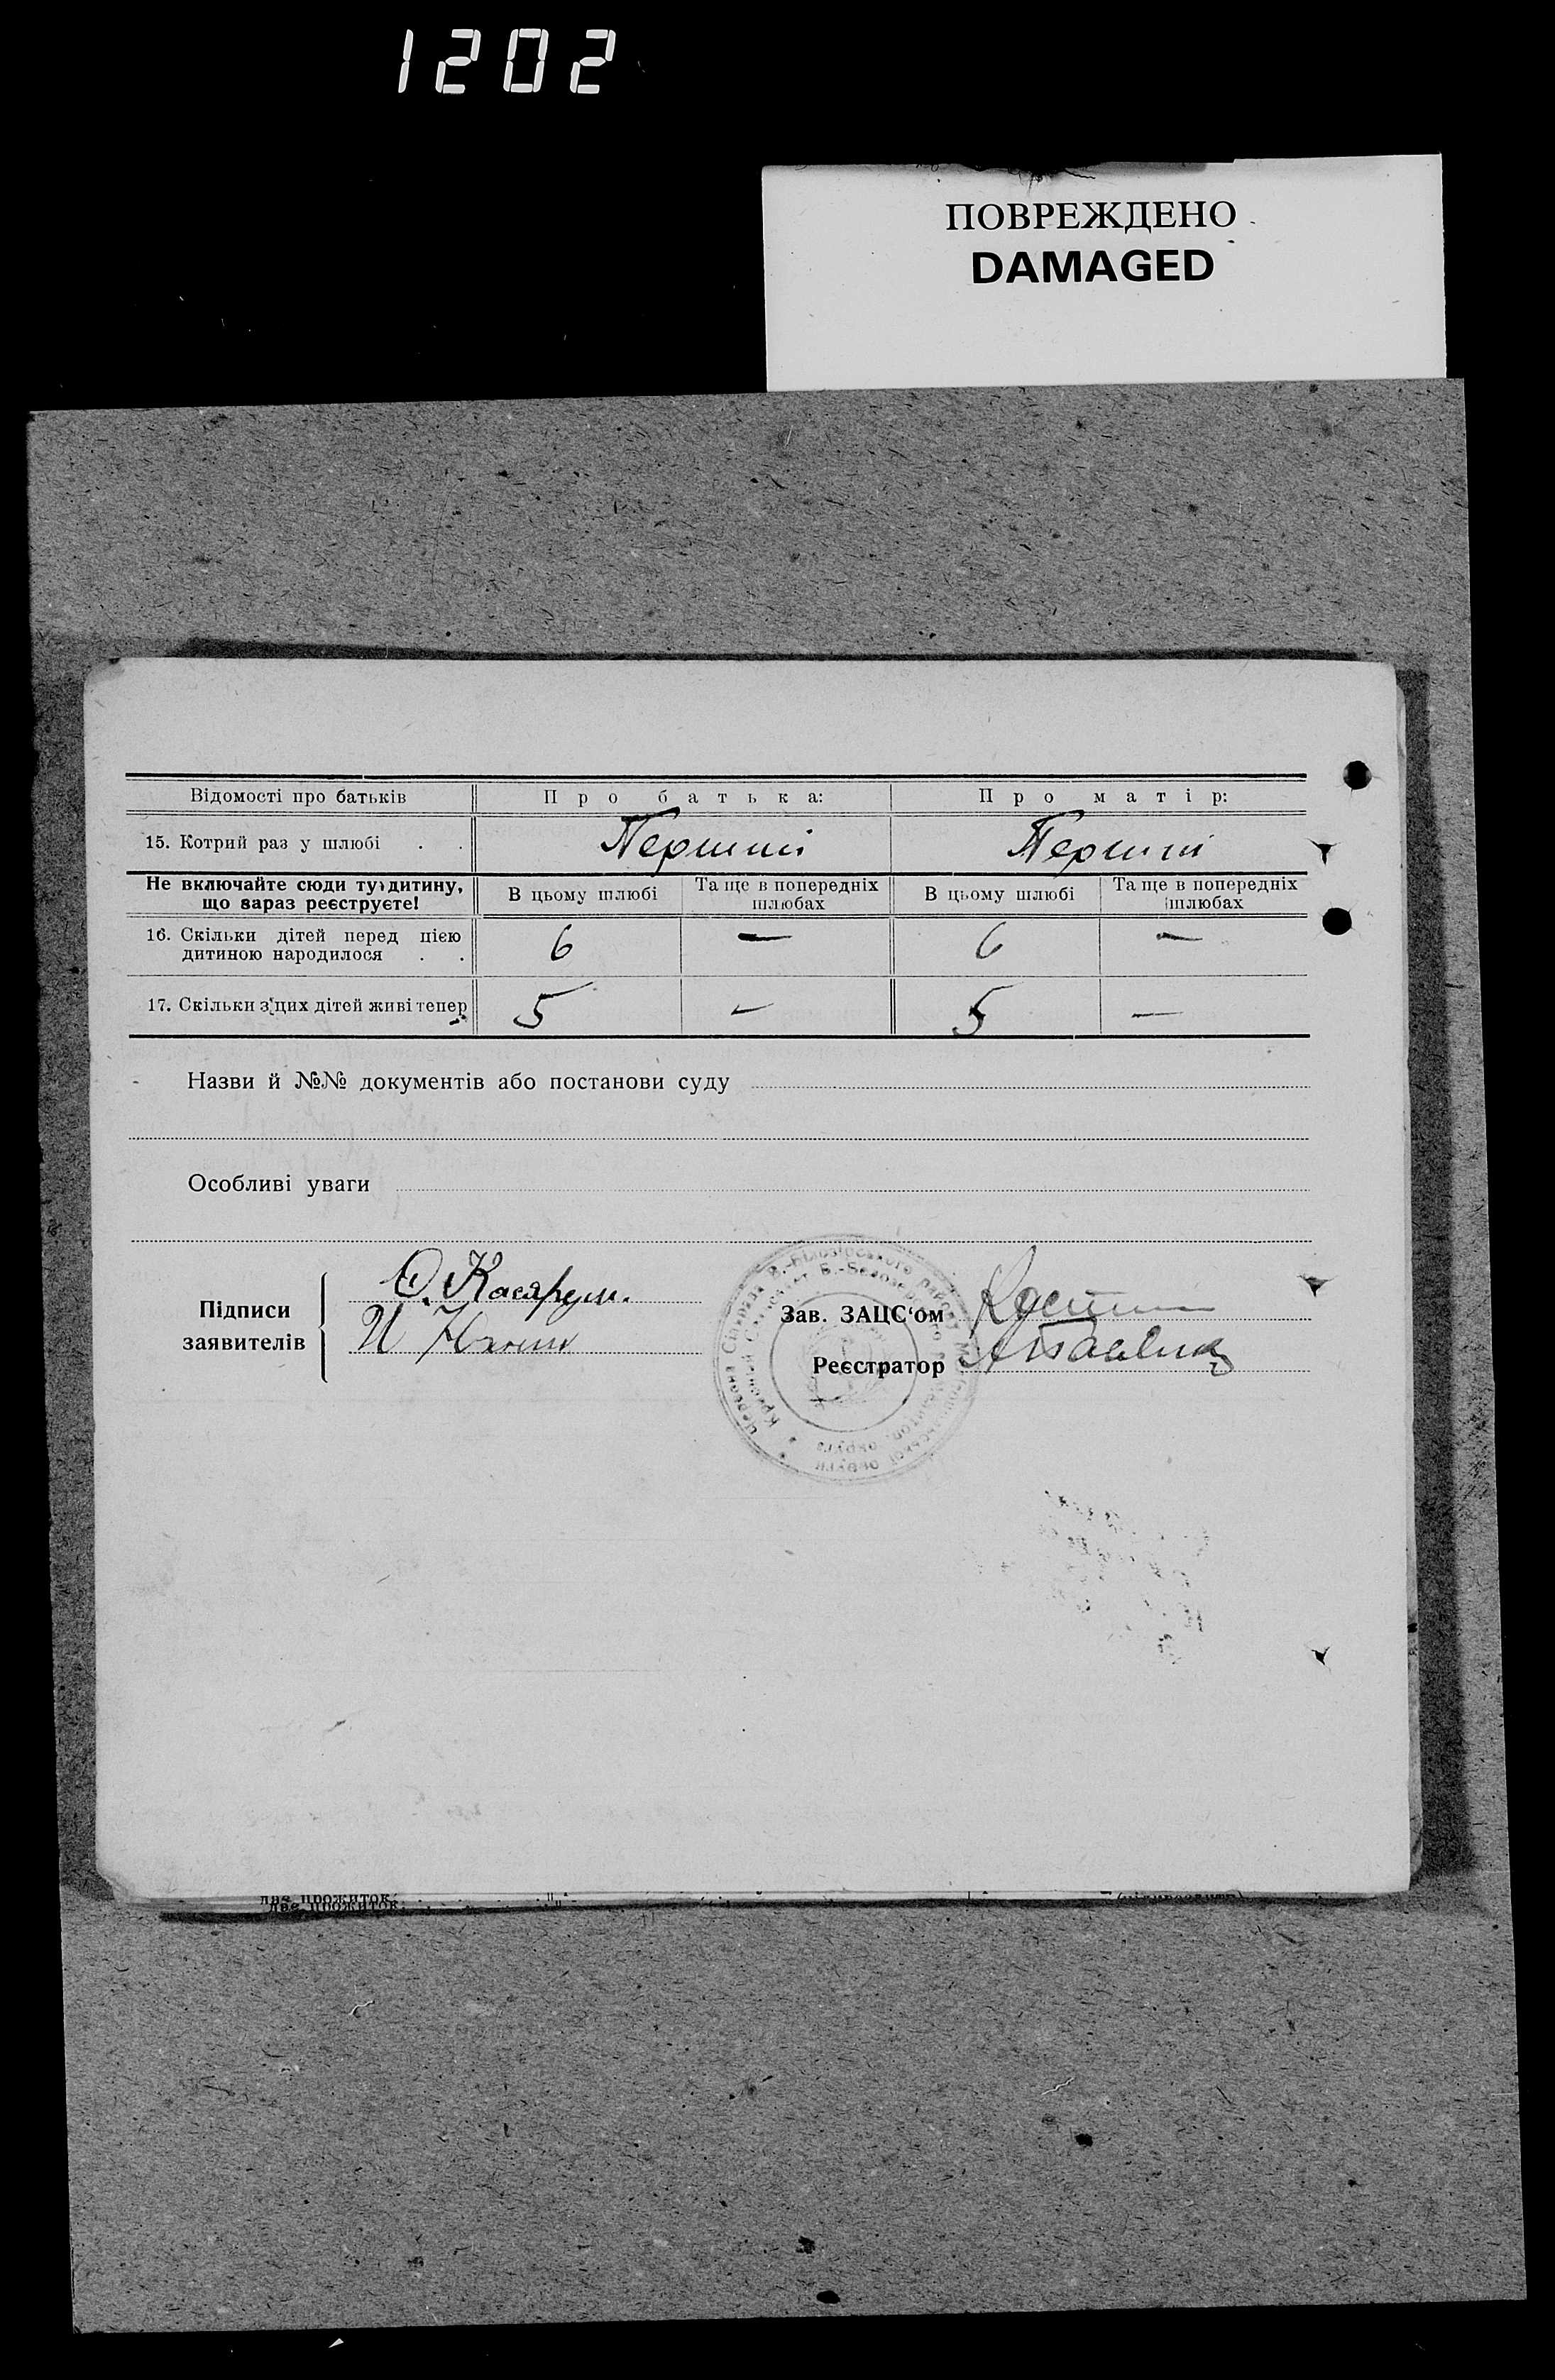 1202
ПОВРЕЖДЕНО
DAMAGED
Відомості про батьків Про батька: Про матір:
15. Котрий раз у шлюбі . . Перший Перший
Не включайте сюди ту дитину, що зараз реєструєте! В цьому шлюбі Та ще в попередніх шлюбах В цьому шлюбі Та ще в попередніх шлюбах
16. Скільки дітей перед цією
дитиною народилося . . 6 — 6 —
17. Скільки з цих дітей живі тепер 5 — 5 —
Назви й №№ документів або постанови суду
Особливі уваги
Підписи
заявителів
О.
И
Зав. ЗАЦС‘ом
Реєстратор
Червона В.-Білозірського району
Б.-Белозерского
округи
округа
две прожиток.
две прожиток.